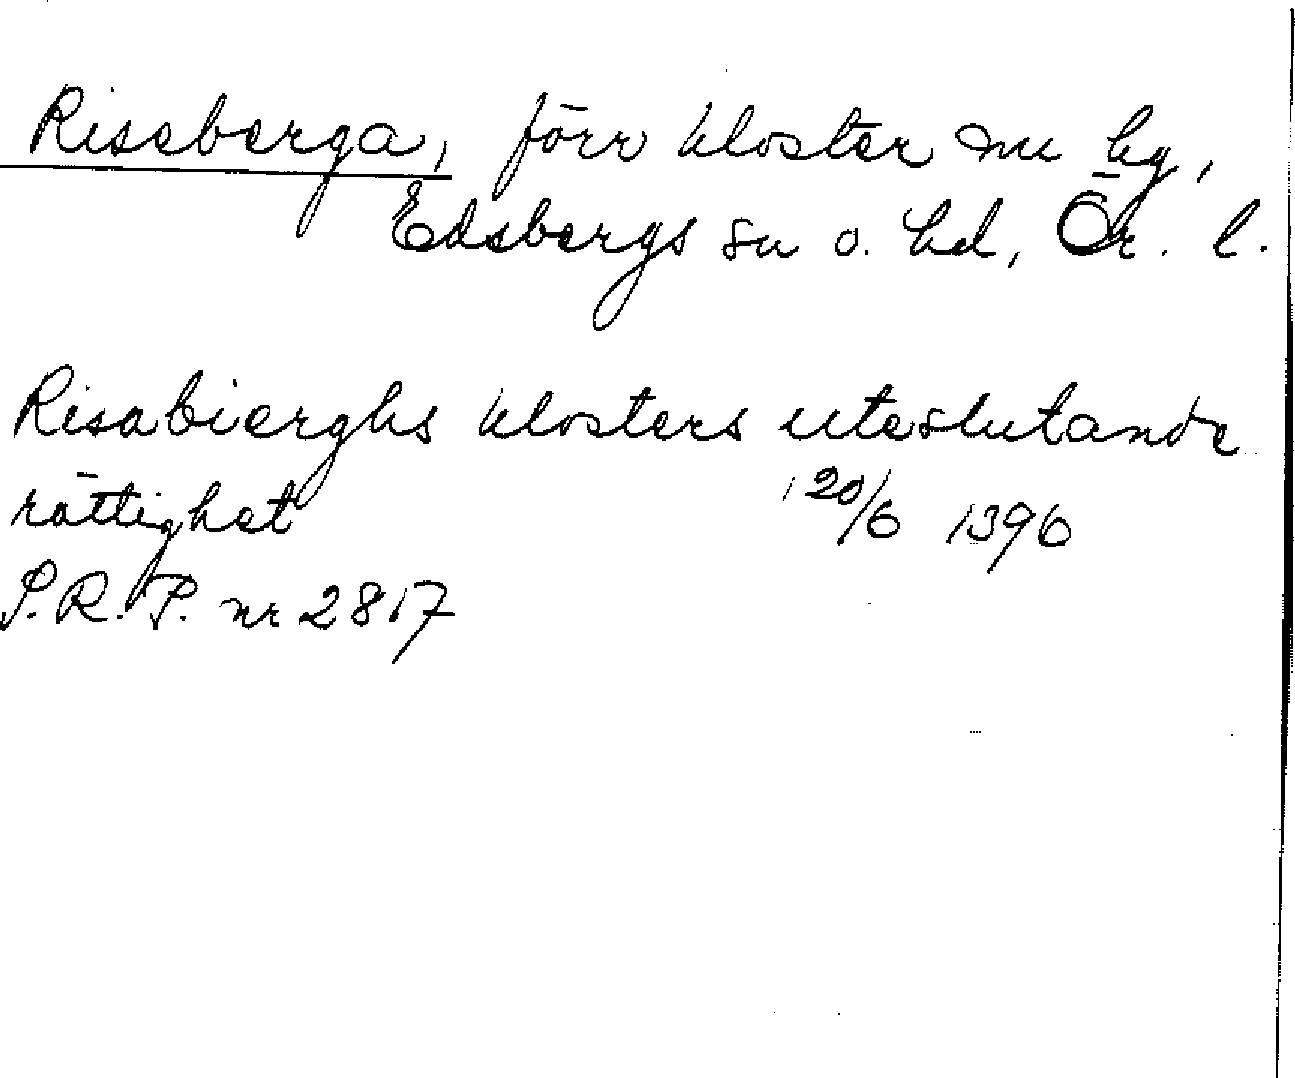 Riseberga, förr kloster nu hg,
Edsbergs sn o. hd, Ör. l.
Risabierghs klosters uteslutande
rättighet 20/6 1396
S.R.P. nr 2817